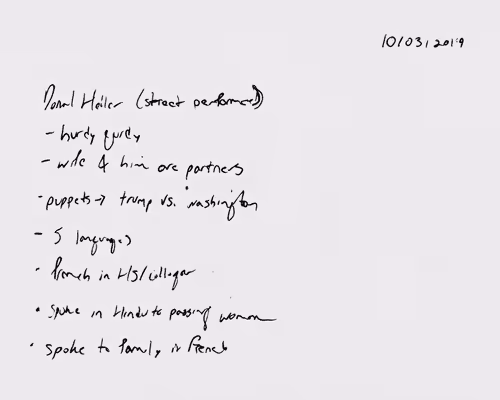 10/03/2019
Donal Heller (street performer)
- hurdy gurdy
- wife & him are partners
- puppets → trump vs. washington
- 5 languages
- French in HS/college
- spoke in Hindu to passing woman
- spoke to family in French